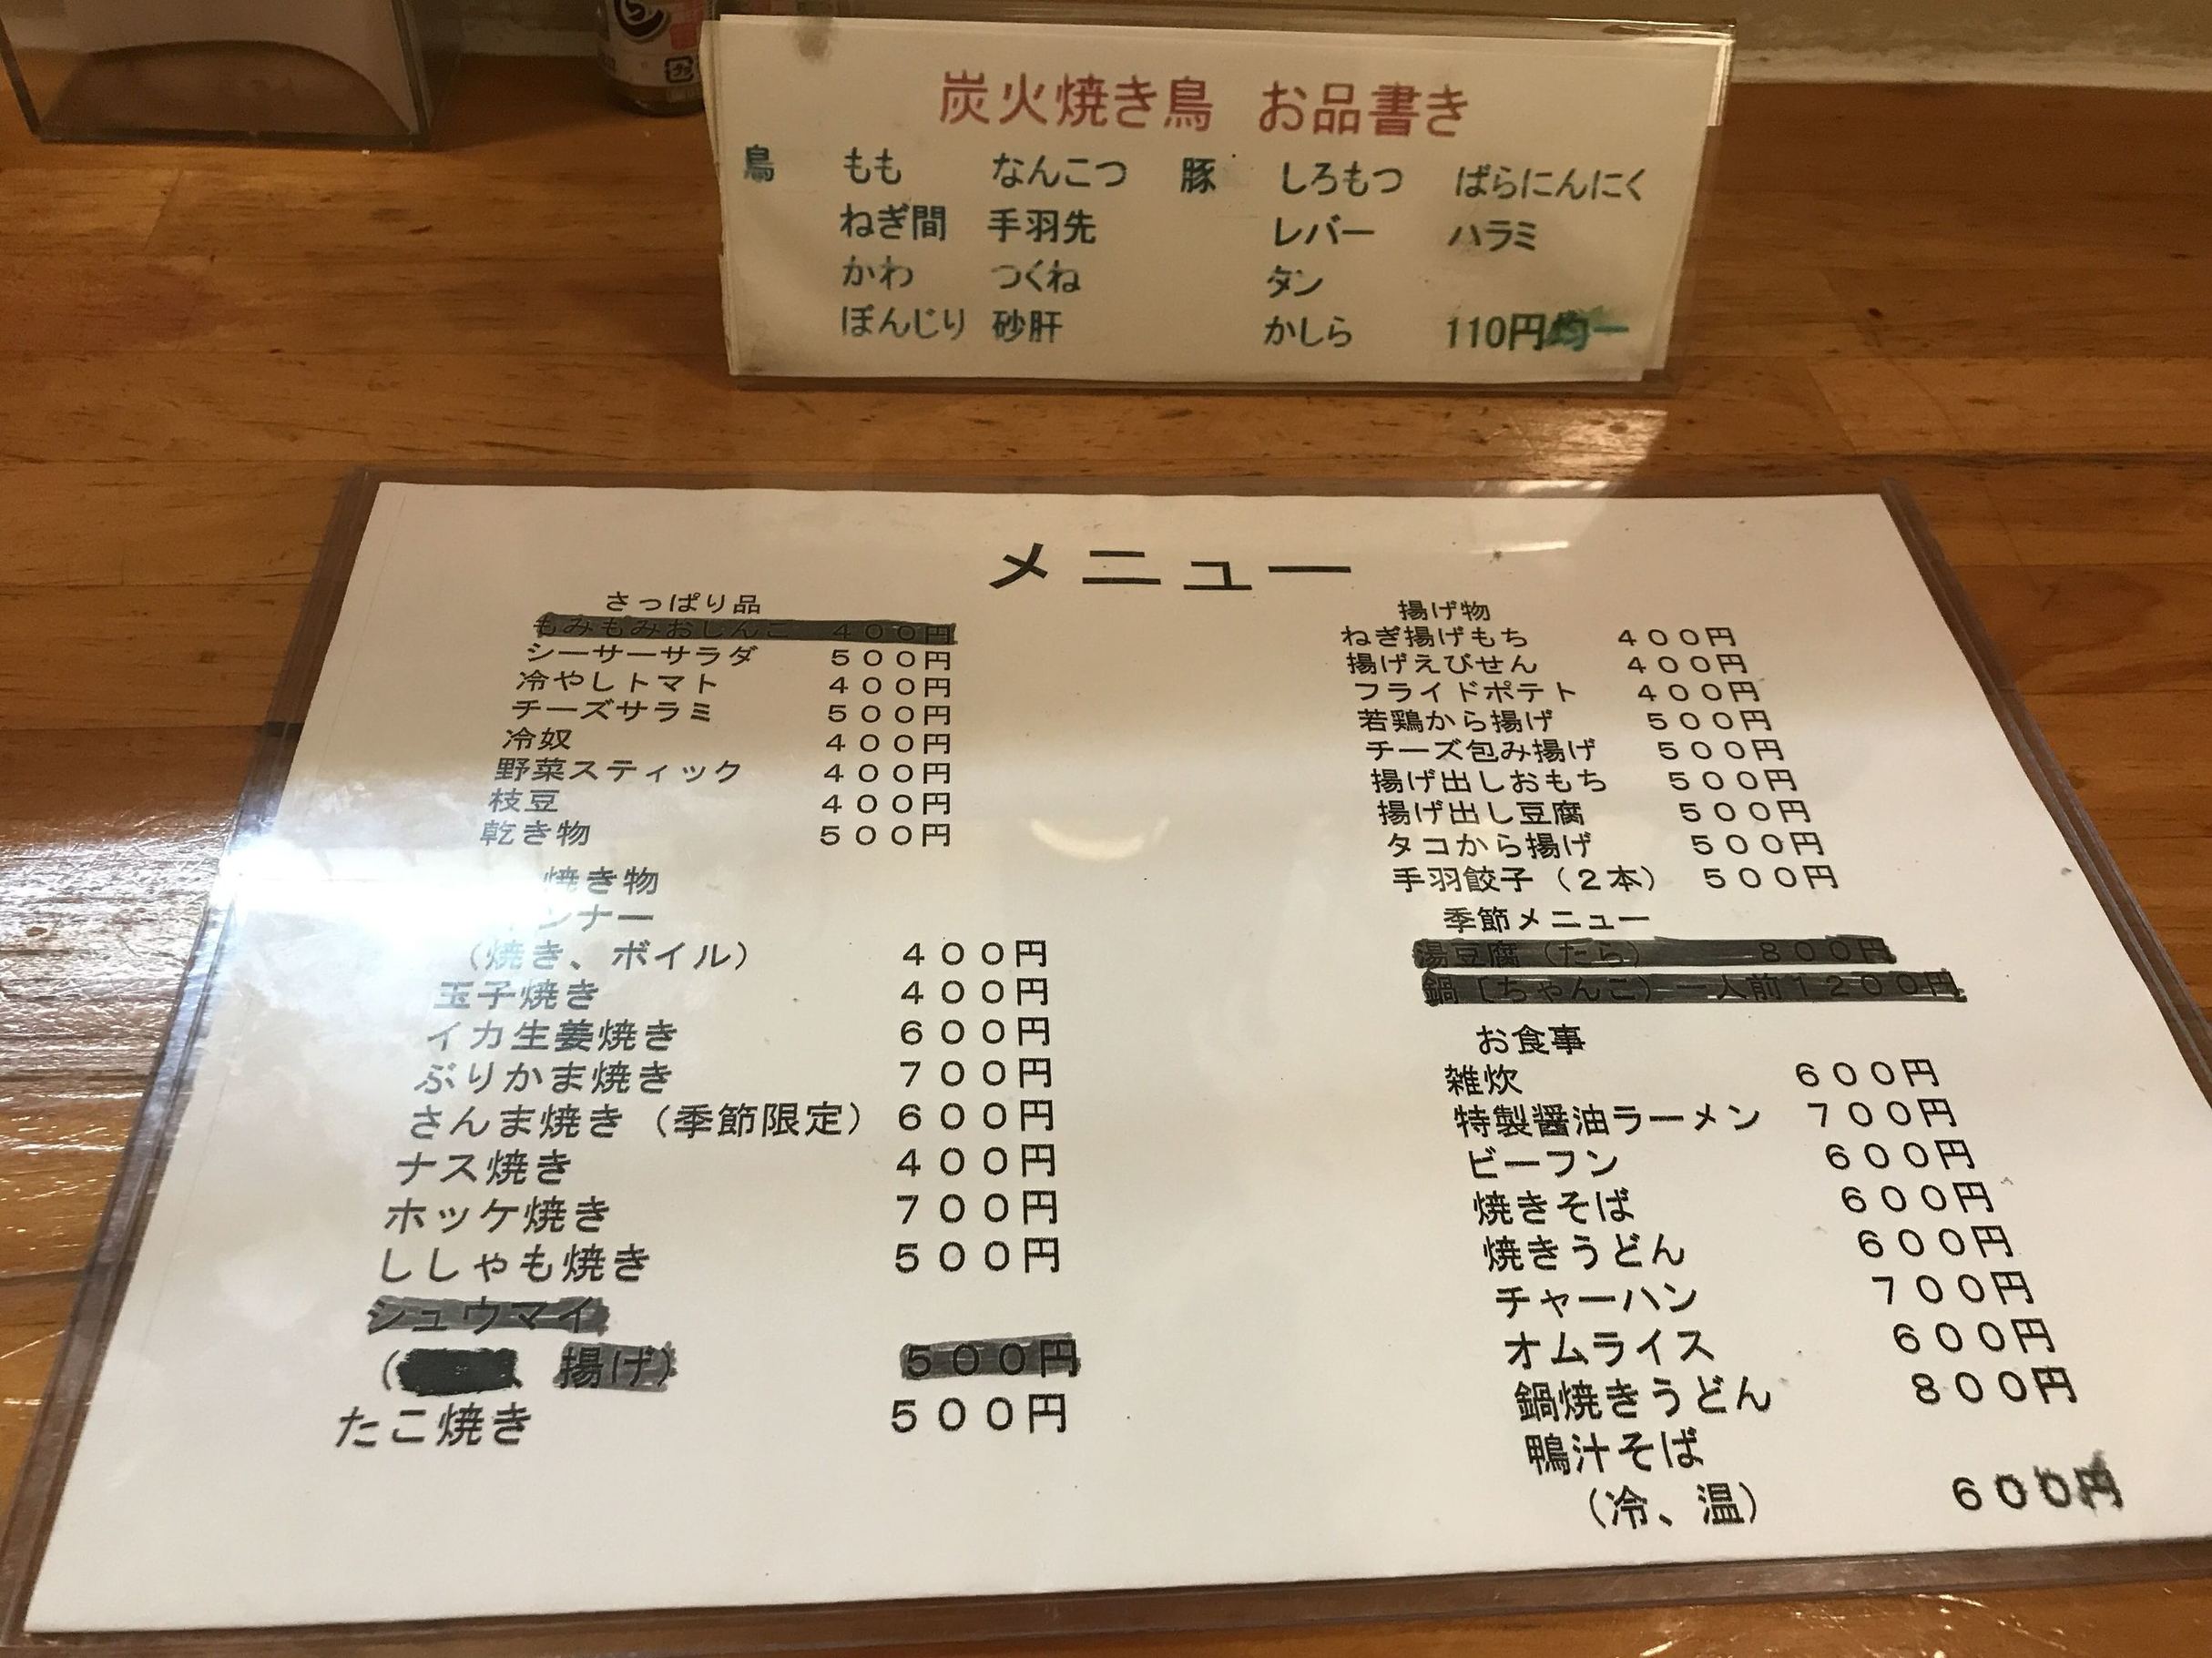 炭火焼き鳥 お品書き
鳥 もも なんこつ 豚 しろもつ ばらにんにく
ねぎ間 手羽先 レバー ハラミ
かわ つくね タン
ぼんじり 砂肝 かしら 110円均一
メニュー
さっぱり品
もみもみおしんこ 400円
シーサーサラダ 500円
冷やしトマト 400円
チーズサラミ 500円
冷奴 400円
野菜スティック 400円
枝豆 400円
乾き物 500円
焼き物
ンナー
(焼き、ボイル) 400円
玉子焼き 400円
イカ生姜焼き 600円
ぶりかま焼き 700円
さんま焼き(季節限定) 600円
ナス焼き 400円
ホッケ焼き 700円
ししゃも焼き 500円
シュウマイ
( 揚げ) 500円
たこ焼き 500円
揚げ物
ねぎ揚げもち 400円
揚げえびせん 400円
フライドポテト 400円
若鶏から揚げ 500円
チーズ包み揚げ 500円
揚げ出しおもち 500円
揚げ出し豆腐 500円
タコから揚げ 500円
手羽餃子(2本) 500円
季節メニュー
湯豆腐(たら) 800円
鍋〔ちゃんこ)一人前1200円
お食事
雑炊 600円
特製醤油ラーメン 700円
ビーフン 600円
焼きそば 600円
焼きうどん 600円
チャーハン 700円
オムライス 600円
鍋焼きうどん 800円
鴨汁そば
(冷、温) 600円